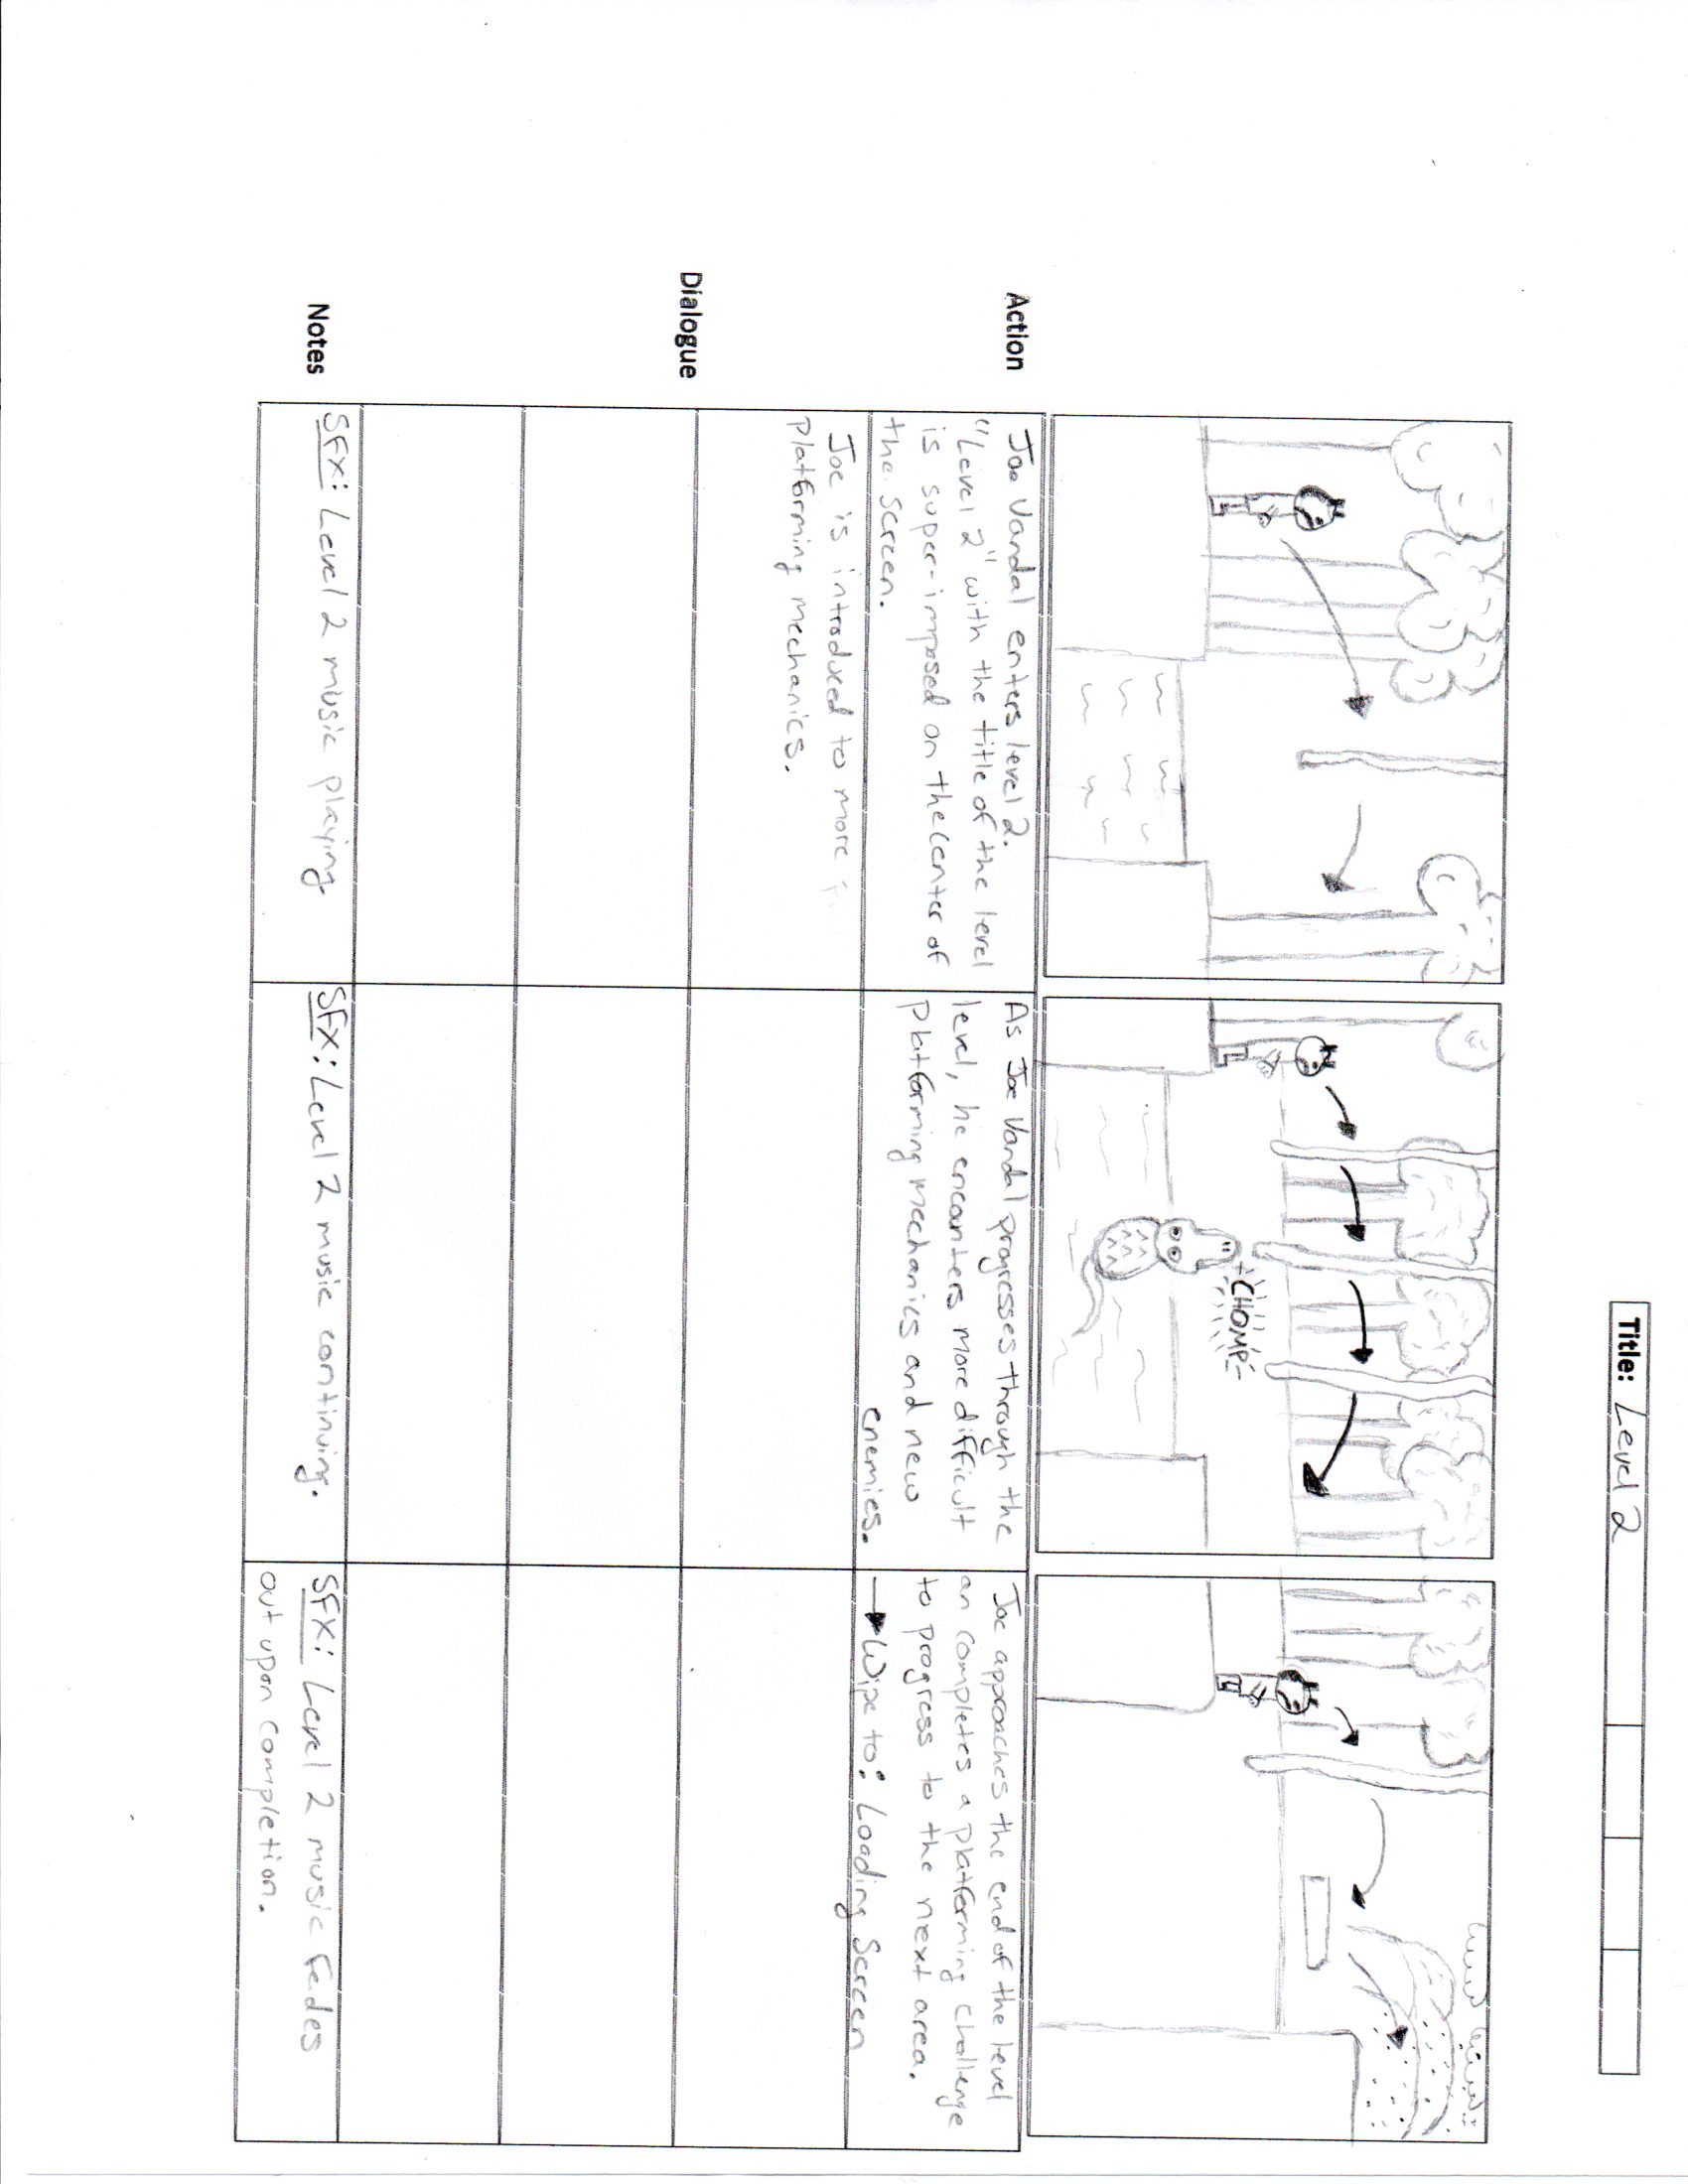 Title: Level 2
CHOMP
Action
Joe Vandal enters level 2.
"Level 2" with the title of the level
is super-imposed on the center of
the screen.
Joe is introduced to more
platforming mechanics.
As Joe Vandal progresses through the
level, he encounters more difficult
platforming mechanics and new
enemies.
Joe approaches the end of the level
an completes a platforming challenge
to progress to the next area.
→ Wipe to: Loading Screen
Dialogue
Notes
SFX: Level 2 music playing.
SFX: Level 2 music continuing.
SFX: Level 2 music fades
out upon completion.